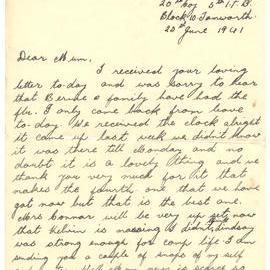 20th Coy 5th I.T.B.
Block 10 Tamworth.
22nd June 1941
Dear Mum,
I received your loving
letter to-day and was sorry to hear
that Bernie & family have had the
flu. I only came back from leave
to-day. We received the clock alright
it came up last week we didn't know
it was there till Monday and no
doubt it is a lovely thing and we
thank you very much for it that
makes the fourth one that we have
got now but that is the best one.
Mrs Connor will be very now
that Kelvin is missing. I didn't Lindsay
was strong enough for camp life. I am
sending you a couple of snaps of my self